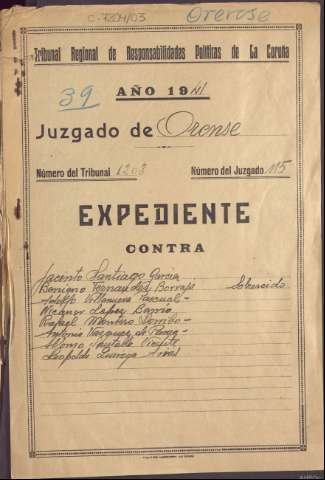 C-7204/03
Orense
Tribunal Regional de Responsabilidades Políticas de La Coruña
39 AÑO 1941
Juzgado de Orense
Número del Tribunal 1203 Número del Juzgado 115
EXPEDIENTE
CONTRA
Jacinto Santiago García
Benigno Fernández Borrajo Sobreseido
Adolfo Villanueva Pascual-
Nicanor López Barrio
Rafael Montero
Antonio Vázquez de
Leopoldo